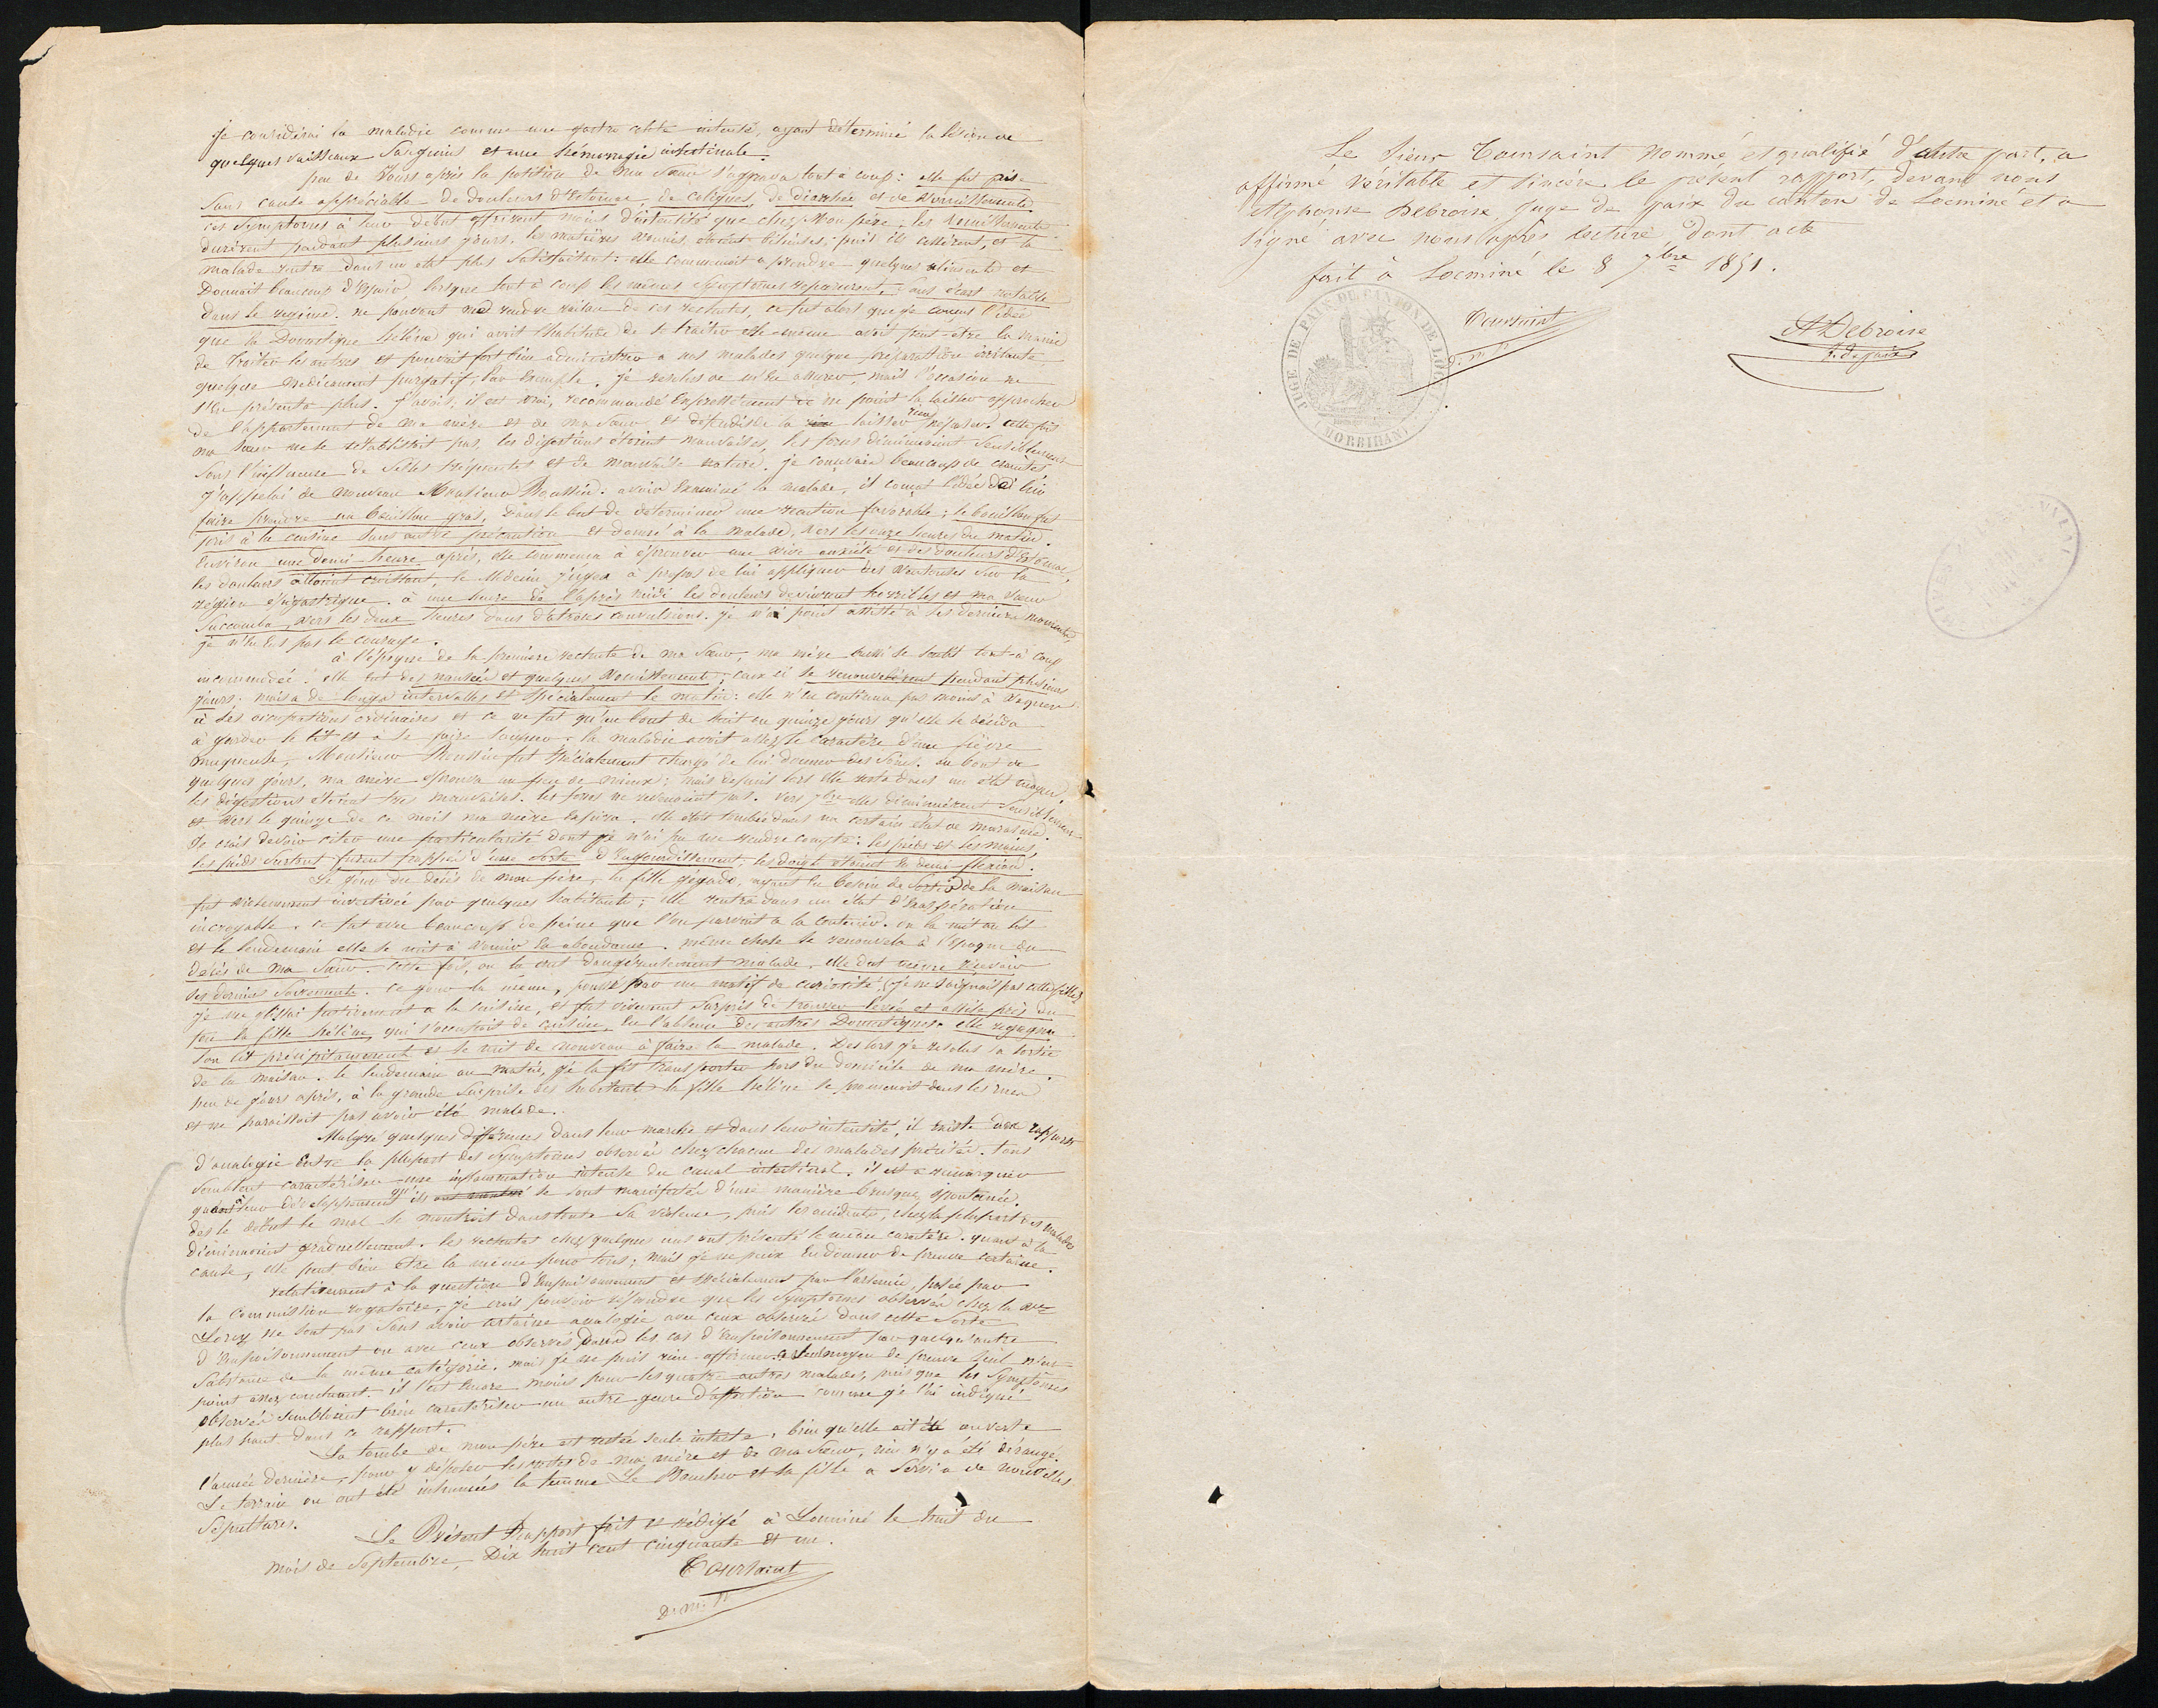 je considérai la maladie comme une gastro colite intense, ayant déterminé la lésion de
quelques vaisseaux sanguins et une hémorragie intestinale.
peu de jours après la position de ma sœur s'aggrava tout à coup : elle fut prise
sans cause appréciable de douleurs d'estomac, de coliques, de diarrhée et de vomissements
ces symptomes à leur début offrirent moins d'intensité que chez mon père ; les vomissements
durèrent pendant plusieurs jours, les matières vomies étaient bilieuses ; puis ils cessèrent, et la
malade rentra dans un état plus satisfaisant : elle commençait à prendre quelques aliments et
donnait beaucoup d'espoir lorsque tout à coup les mêmes symptomes reparurent, sans écart notable
dans le régime. ne pouvant me rendre raison de ces rechutes, ce fut alors que je conçus l'idée
que la domestique hélène qui avait l'habitude de se traiter elle-même avait peut-être la manie
de traiter les autres et pouvait fort bien administrer à nos malades quelque préparation irritante
quelque médicament purgatif, par exemple. je résolus de m'en assurer, mais l'occasion ne
s'en présenta plus. j'avais, il est vrai, recommandé expressément de ne point la laisser approcher
de l'appartement de ma mère et de ma sœur, et défendis de la laisser rien préparer. cette fois
ma sœur ne se rétablissait pas, les digestions étaient mauvaises, les forces diminuaient sensiblement
sous l'influence de selles fréquentes et de mauvaise nature. je concevais beaucoup de craintes
j'appelai de nouveau Monsieur Roussin. avoir examiné la malade, il conçut l'idée de lui
faire prendre un bouillon gras, dans le but de déterminer une réaction favorable ; le bouillon fut
pris à la cuisine sans autre précaution et donné à la malade, vers les onze heures du matin.
Environ une demi-heure après, elle commença à éprouver une vive anxiété et des douleurs d'estomac,
les douleurs allaient croissant, le Médecin jugea à propos de lui appliquer des ventouses sur la
région épigastrique. à une heure de l'après midi les douleurs devinrent horribles et ma sœur
succomba, vers les deux heures dans d'atroces convulsions. je n'ai point assisté à ses derniers moments,
je n'en eus pas le courage.
à l'époque de la première rechute de ma sœur, ma mère aussi se sentit tout-à coup
incommodée : elle eut des nausées et quelques vomissements ; ceux ci se renouvelèrent pendant plusieurs
jours, mais à de longs intervalles et spécialement le matin : elle n'en continua pas moins à vaquer
à ses occupations ordinaires et ce ne fut qu'au bout de huit ou quinze jours qu'elle se décida
à garder le lit et à se faire soigner. la maladie avait assez le caractère d'une fièvre
muqueuse, Monsieur Roussin fut spécialement chargé de lui donner des soins. au bout de
quelques jours, ma mère éprouva un peu de mieux ; mais depuis lors elle resta dans un état moyen,
les digestions étaient très mauvaises. les forces ne revenaient pas. vers 7bre elles diminuèrent sensiblement
et vers le quinze de ce mois ma mère expira. elle était tombée dans un certain état de marasme.
Je crois devoir citer une particularité dont je n'ai pu me rendre compte : les pieds et les mains,
les pieds surtout furent frappés d'une sorte d'engourdissement ; les doigts étaient en demi-flexion.
Le jour du décès de mon père, la fille Jégado, ayant eu besoin de sortir de la maison
fut vivement invectivée par quelques habitants ; elle rentra dans un état d'exaspération
incroyable. ce fut avec beaucoup de peine que l'on parvint à la contenir. on la mit au lit
et le lendemain elle se mit à vomir en abondance. même chose se renouvela à l'époque du
décès de ma sœur. cette fois, on la crut dangereusement malade, elle dut même recevoir
les derniers sacrements. ce jour là même, poussé par un motif de curiosité (je ne soignais pas cette fille)
je me glissai furtivement à la cuisine, et fus vivement surpris de trouver levée et assise près du
feu la fille hélène, qui s'occupait de cuisine, en l'absence des autres domestiques. elle regagna
son lit précipitamment et se mit de nouveau à faire la malade. Dès lors je résolus sa sortie
de la maison. le lendemain au matin, je la fis transporter hors du domicile de ma mère.
peu de jours après, à la grande surprise des habitants la fille hélène se promenait dans les rues
et ne paraissait pas avoir été malade.
Malgré quelques différences dans leur marche et dans leur intensité, il existe des rapports
d'analogie entre la plupart des symptomes observés chez chacun des malades précités. tous
semblent caractériser une inflammation intense du canal intestinal. il est à remarquer
quant à leur développement qu'ils se sont manifestés d'une manière brusque, spontanée.
dès le début le mal se montrait dans toute sa violence, puis les accidents, chez la plupart des malades
diminuaient graduellement. les rechutes chez quelques uns ont présenté le même caractère. quant à la
cause, elle peut bien être la même pour tous ; mais je ne puis en donner de preuve certaine.
relativement à la question d'empoisonnement et spécialement par l'arsenic, posée par
la commission rogatoire, je crois pouvoir répondre que les symptomes observés chez la
Lorcy ne sont pas sans avoir certaine analogie avec ceux observés dans cette sorte
d'empoisonnement ou avec ceux observés dans les cas d'empoisonnement par quelqu'autre
substance de la même catégorie. mais je ne puis rien affirmer. ce seul moyen de preuve seul n'est
point assez concluant. il l'est encore moins pour les quatre autres malades, puis que les symptômes
observés semblaient bien caractériser un autre genre d'affection comme je l'ai indiqué
plus haut dans ce rapport.
La tombe de mon père est restée seule intacte, bien qu'elle ait été ouverte
l'année dernière, pour y déposer les restes de ma mère et de ma sœur, rien n'y a été dérangé.
Le terrain où ont été inhumées la femme Le Boucher et sa fille a servi à de nouvelles
sépultures.
Le Présent Rapport fait et rédigé à Locminé le huit du
mois de Septembre, Dix huit cent cinquante et un.
Toursaint
D. m. P.
Le Sieur Toursaint nommé et qualifié d'autre part, a
affirmé véritable et sincère le présent rapport, devant nous
Alphonse Debroise, juge de paix du canton de Locminé et a
signé avec nous après lecture, dont acte
fait à Locminé le 8 7bre 1851.
Toursaint
d. m. P.
A Debroise
j. de paix
JUGE DE PAIX DU CANTON DE LOC
(MORBIHAN)